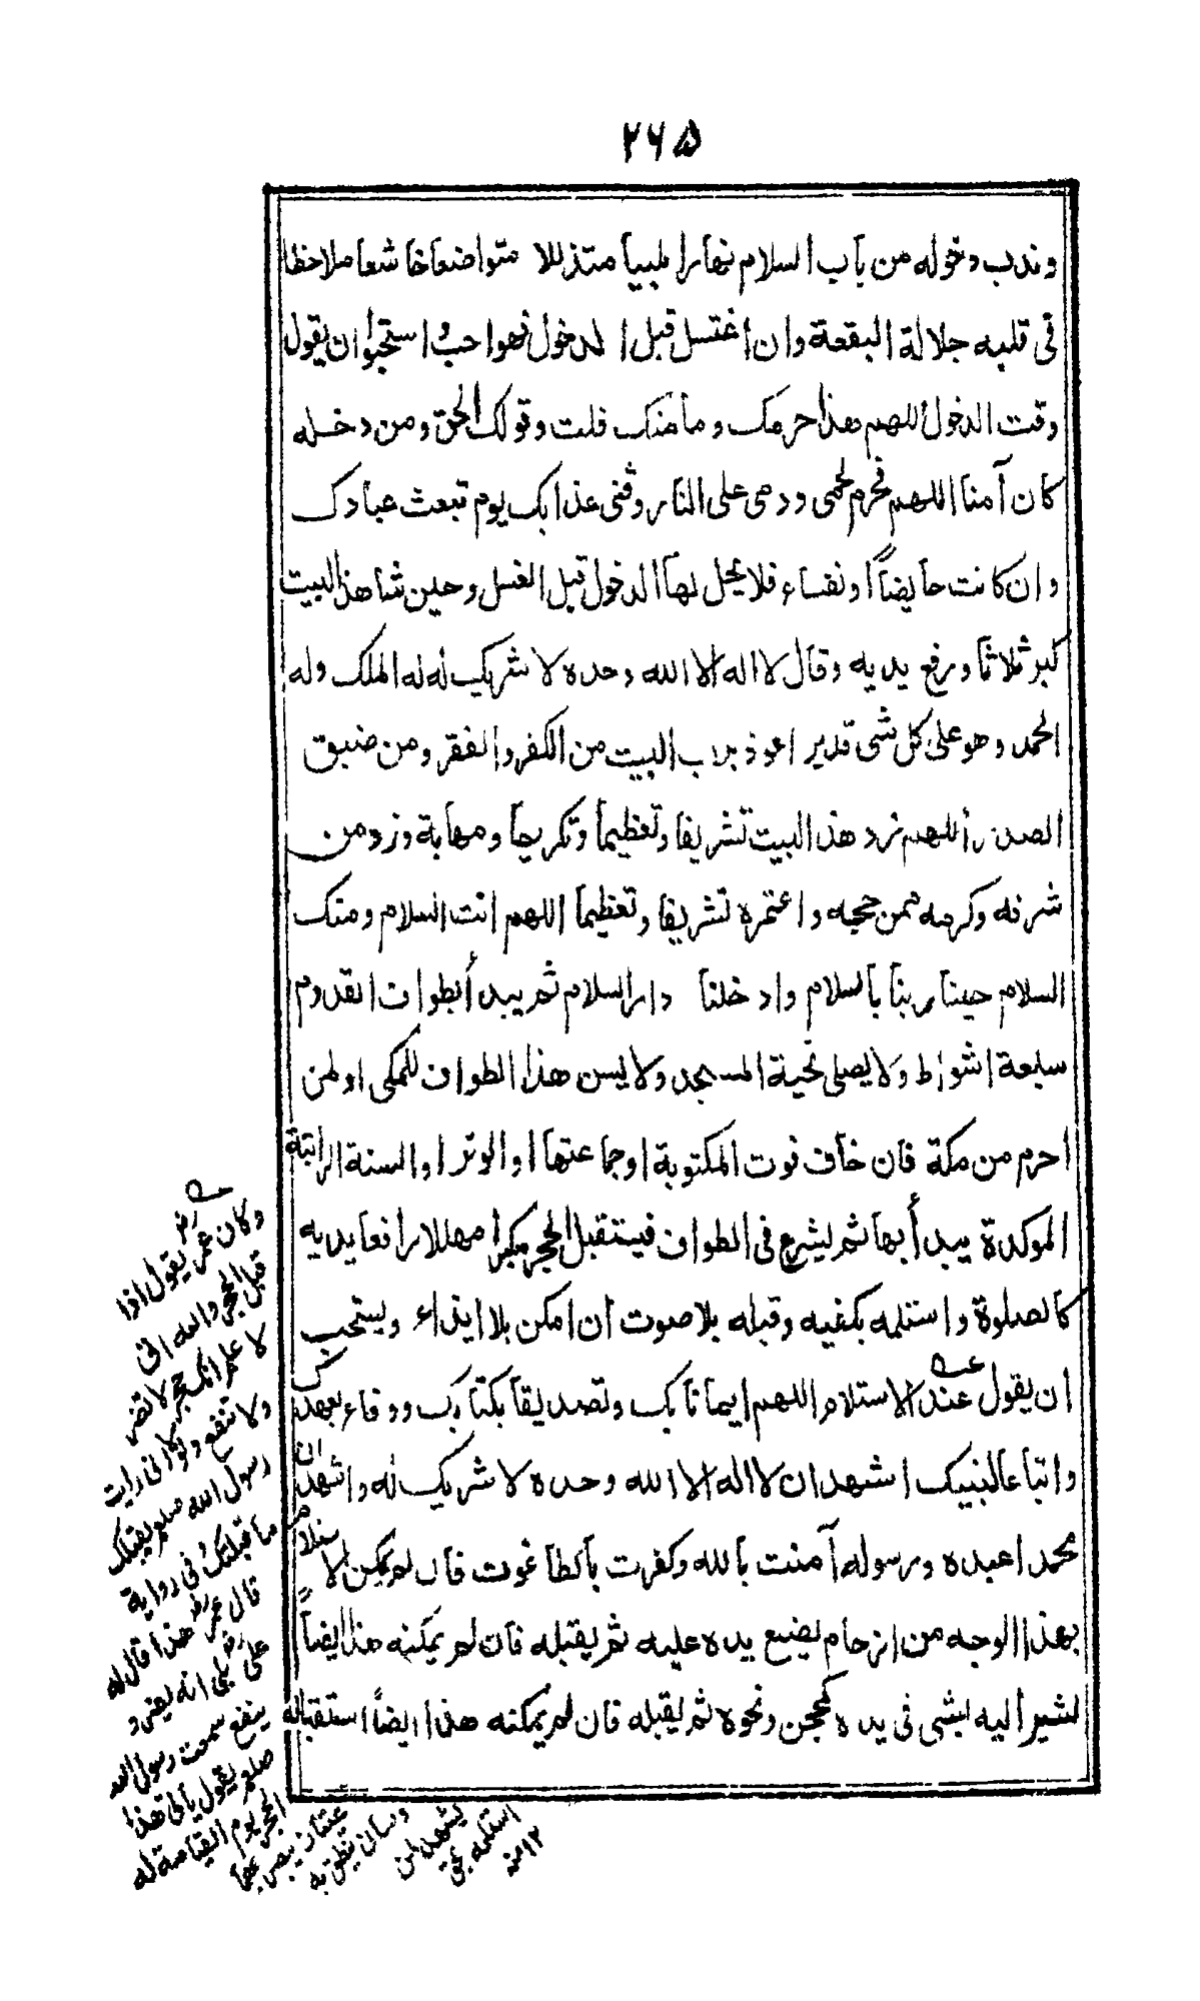 ٢٦٥
وندب دخوله من باب السلام نهارا ملبيا متذللا متواضعا خاشعا ملاحظا
فى قلبه جلالة البقعة وان اغتسل قبل الدخول فهو احب واستحبوا ان يقول
وقت الدخول اللهم هذا حرمك ومأمنك قلت وقولك الحق ومن دخله
كان آمنا اللهم فحرم لحمى ودمى على النار وقنى عذابك يوم تبعث عبادك
وان كانت حايضاً او نفساء فلا يحل لها الدخول قبل الغسل وحين شاهد البيت
كبر ثلاثا ورفع يديه وقال لا اله الا الله وحده لا شريك له له الملك وله
الحمد وهو على كل شى قدير اعوذ برب البيت من الكفر والفقر ومن ضيق
الصدر اللهم زد هذا البيت تشريفا وتعظيما وتكريما ومهابة وزد من
شرفه وكرمه ممن حجه واعتمره تشريفا وتعظيما اللهم انت السلام ومنك
السلام حينا ربنا بالسلام وادخلنا دار السلام ثم يبدأ بطواف القدوم
سبعة اشواط ولا يصلى تحية المسجد ولا يسن هذا الطواف للمكى او لمن
احرم من مكة فان خاف فوت المكتوبة او جماعتها او الوتر او السنة الراتبة
الموكدة يبدأ بها ثم ليشرع فى الطواف فيستقبل الحجر مكبرا مهللا رافعا يديه
كالصلوة واستلمه بكفيه وقبله بلا صوت ان امكن بلا ايذاء ويستحب
ان يقول عند الاستلام اللهم ايمانا بك وتصديقا بكتابك ووفاء بعهدك
واتباعا لنبيك اشهد ان لا اله الا الله وحده لا شريك له واشهد ان
محمدا عبده ورسوله آمنت بالله وكفرت بالطاغوت فان لم يمكن الاستلام
بهذا الوجه من ازحام يضع يده عليه ثم يقبله فان لم يمكنه هذا ايضاً
يشير اليه بشى فى يده كمحجن ونحوه ثم يقبله فان لم يمكنه هذا ايضاً استقباله
وكان عمر رض يقول اذا
قبل الحجر والله انى
لا علم انك حجر لا تضر
ولا تنفع ولولا انى رايت
رسول الله صلعم يقبلك
ما قبلتك فى رواية
قال عمر رض هذا قال له
على رض بلى انه يضر و
ينفع سمعت رسول الله
صلعم يقول ياتى هذا
الحجر يوم القيامة له
عينان يبصر بهما
ولسان ينطق به
يشهد لمن
استلمه بحق
١٢ منه